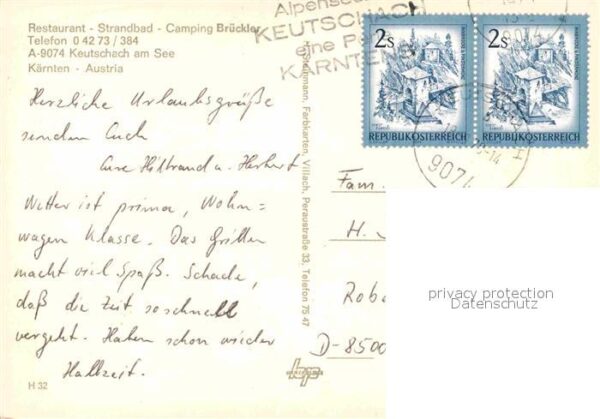 Restaurant - Strandbad - Camping Brückler
Telefon 0 42 73 / 384
A-9074 Keutschach am See
Kärnten - Austria
Alpenseebad
KEUTSCHACH
eine P
KÄRNTENS
2S
REPUBLIK ÖSTERREICH
2S
REPUBLIK ÖSTERREICH
9074
Herzliche Urlaubsgrüße
senden Euch
Eure Hiltrand u. Herbert
Wetter ist prima, Wohn=
wagen Klasse. Das Grillen
macht viel Spaß. Schade,
daß die Zeit so schnell
vergeht. Haben schon wieder
Halbzeit.
H 32
Farbkarten, Villach, Peraustraße 33, Telefon 75 47
Fam.
H.
Robe
D-8500
privacy protection
Datenschutz